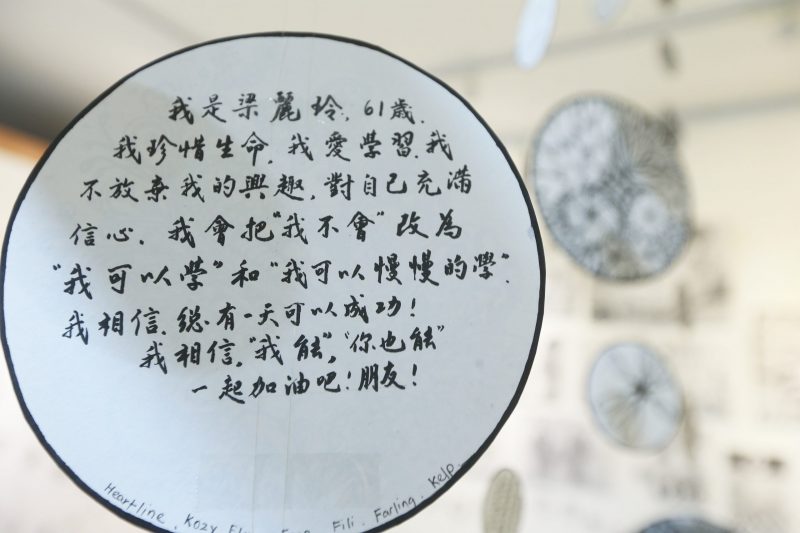 我是梁麗玲，61歲，
我珍惜生命，我愛學習，我
不放棄我的興趣，對自己充滿
信心，我會把“我不會”改為
“我可以學”和“我可以慢慢的學”，
我相信，總有一天可以成功！
我相信，“我能”，“你也能”
一起加油吧！朋友！
Heartline , Kozy Fili . Farling . Kelp.